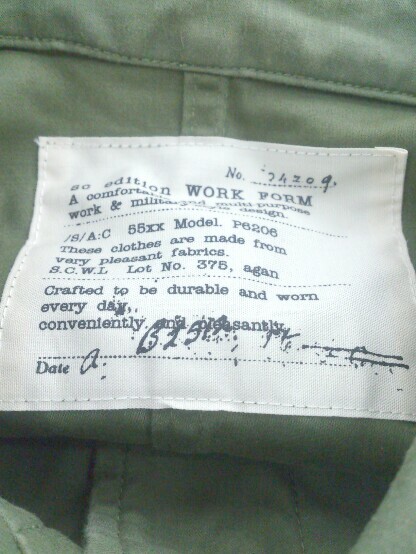 No. 34209.
sc edition
A comfortable WORK FORM
work & military and multi-purpose design.
/S/A:C 55xx Model. P6206
These clothes are made from
very pleasant fabrics.
S.C.W.L Lot No. 375, agan
Crafted to be durable and worn
every day,
conveniently and pleasantly
Date a.